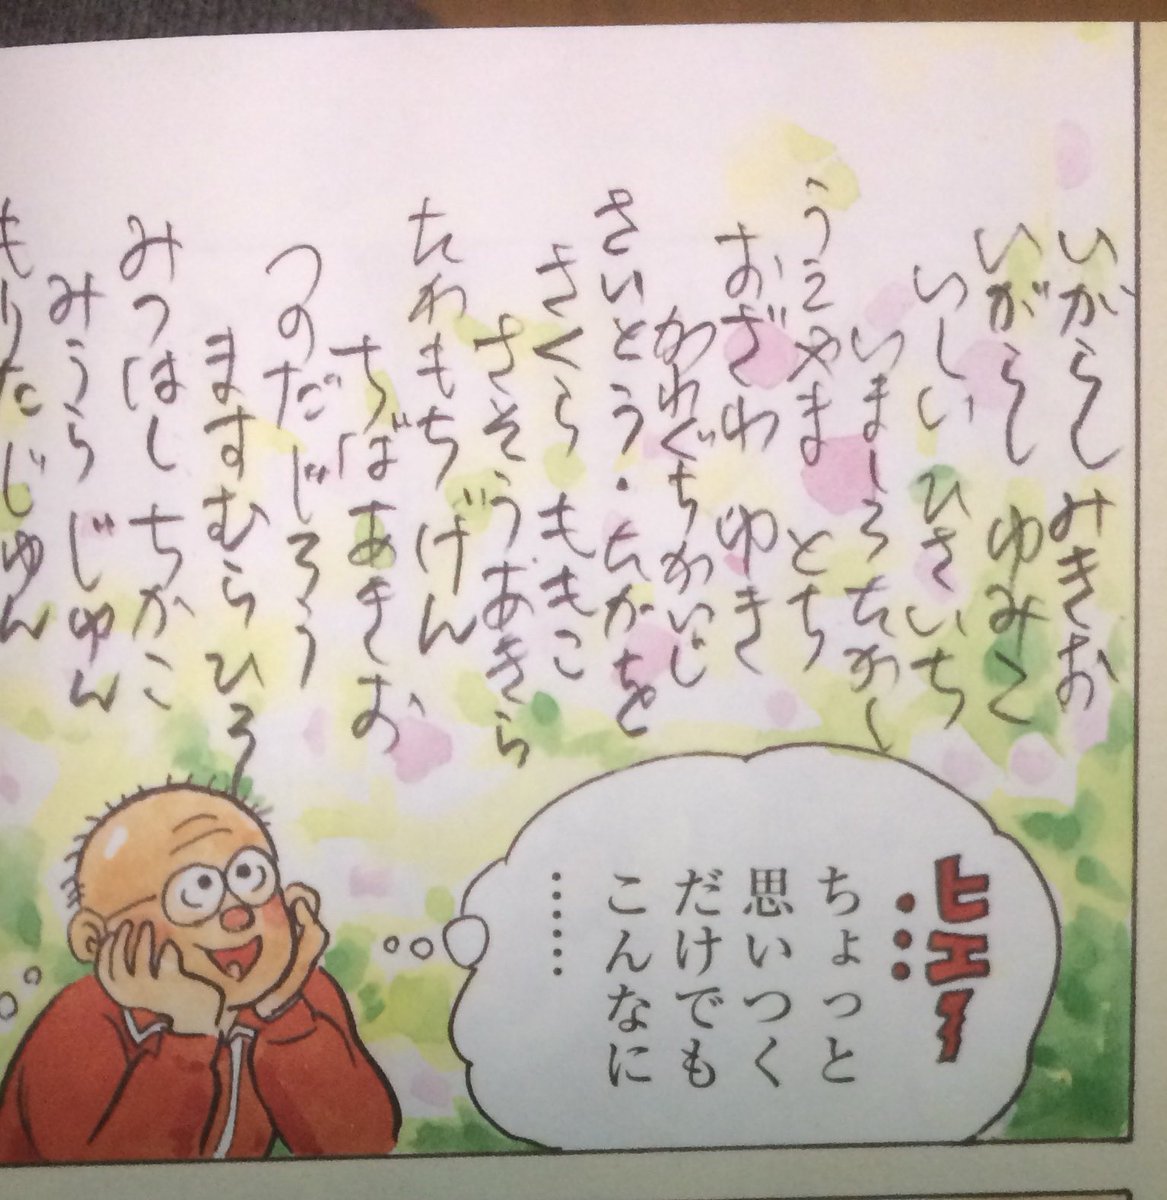 いがらし みきお
いがらし ゆみこ
いしい ひさいち
いましろたかし
うえやま とち
おざわ ゆき
かわぐちかいじ
さいとう・たかを
さくら ももこ
さそうあきら
たわもち げん
ちばあきお
つのだ じろう
ますむら ひろし
みつはし ちかこ
みうら じゅん
もりたじゅん
ヒエー
・・・
ちょっと
思いつく
だけでも
こんなに
……